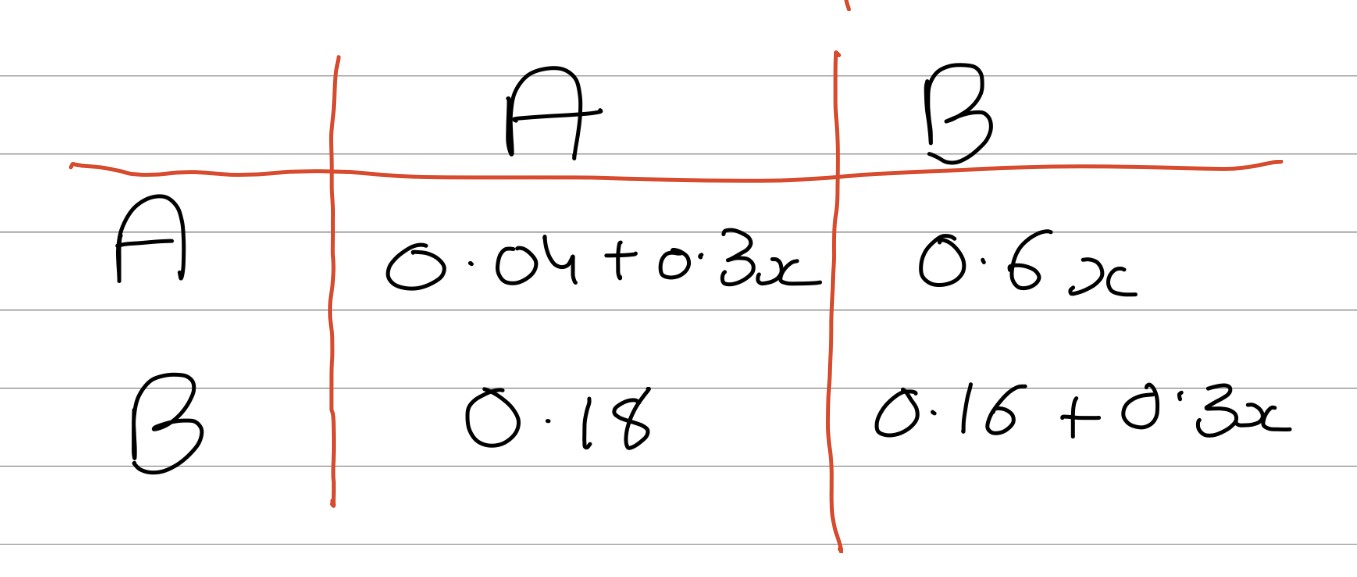 A B
A 0.04+0.3x 0.6x
B 0.18 0.16+0.3x